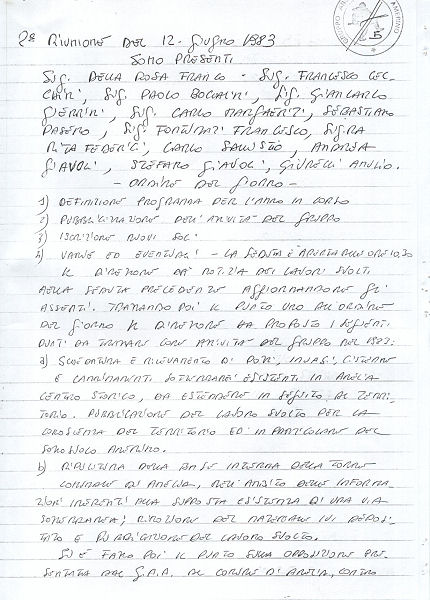 2ª RIUNIONE DEL 12. GIUGNO 1983
SONO PRESENTI
SIG. DELLA ROSA FRANCO - SIG. FRANCESCO CEC-
CHINI, SIG. PAOLO BOCCALINI, SIG. GIANCARLO
GUERRINI, SIG. CARLO MARGHERITI, SEBASTIANO
PASERO, SIG. FORTUNATI FRANCESCO, SIG.RA
RITA FEDERICI, CARLO SALUSTIO, ANDREA
GIAVOLI, STEFANO GIAVOLI, GIURELLI ANILIO.
- ORDINE DEL GIORNO -
1) DEFINIZIONE PROGRAMMA PER L'ANNO IN CORSO
2) PUBBLICIZZAZIONE DELL'ATTIVITÀ DEL GRUPPO
3) ISCRIZIONE NUOVI SOCI
4) VARIE ED EVENTUALI - LA SEDUTA È APERTA ALLE ORE 10,30
IL DIRETTORE DÀ NOTIZIA DEI LAVORI SVOLTI
NELLA SEDUTA PRECEDENTE AGGIORNANDONE GLI
ASSENTI. TRATTANDO POI IL PUNTO UNO ALL'ORDINE
DEL GIORNO IL DIRETTORE HA PROPOSTO I SEGUENTI
PUNTI DA TRATTARE COME ATTIVITÀ DEL GRUPPO NEL 1983:
a) SCHEDATURA E RILEVAMENTO DI POZZI, INVASI, CISTERNE
E CAMMINAMENTI SOTTERRANEI ESISTENTI IN AMELIA
CENTRO STORICO, DA ESTENDERE IN SEGUITO AL TERRI-
TORIO. PUBBLICAZIONE DEL LAVORO SVOLTO PER LA
CONOSCENZA DEL TERRITORIO ED IN PARTICOLARE DEL
SOTTOSUOLO AMERINO.
b) RIPULITURA DELLA BASE INTERNA DELLA TORRE
COMUNALE DI AMELIA, NELL'AMBITO DELLE INFORMA-
ZIONI INERENTI ALLA SUPPOSTA ESISTENZA DI UNA VIA
SOTTERRANEA; RIMOZIONE DEL MATERIALE IVI DEPOSI-
TATO E PUBBLICAZIONE DEL LAVORO SVOLTO.
SI È FATTO POI IL PUNTO SULLA OPPOSIZIONE PRE-
SENTATA DAL G.A.A. AL COMUNE DI AMELIA, CONTRO